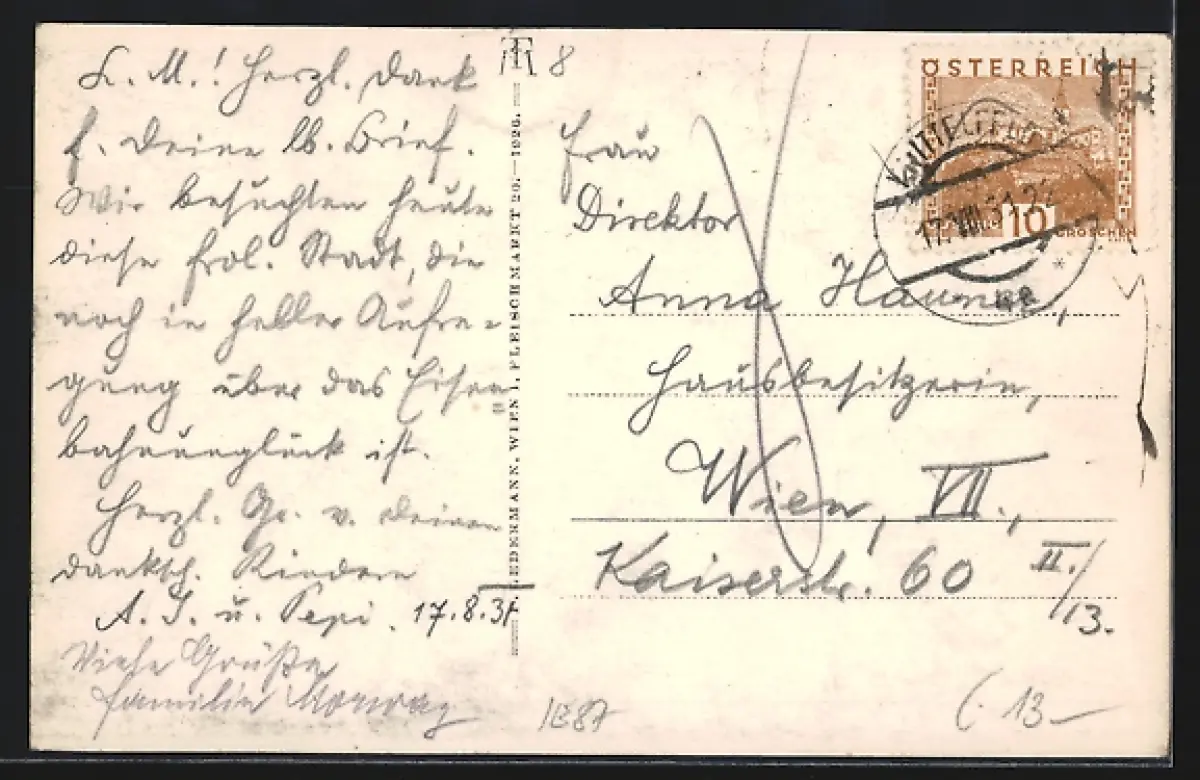 L. M.! Herzl. Dank
f. Deinen lb. Brief.
Wir besuchten heute
diese frdl. Stadt, die
noch in heller Aufre-
gung über das Eisen
bahnunglück ist.
Herzl. Gr. v. Deinen
danksch. Kindern
A. J. u. Pepi. 17.8.31
Viele Grüße
Familie
8
EDERMANN, WIEN I, FLEISCHMARKT 20.—1926.
ÖSTERREICH
10
GROSCHEN
17.VIII.31
Frau
Direktor
Anna
Hausbesitzerin,
Wien, VII.,
Kaiserstr. 60 II./13.
1387
13-